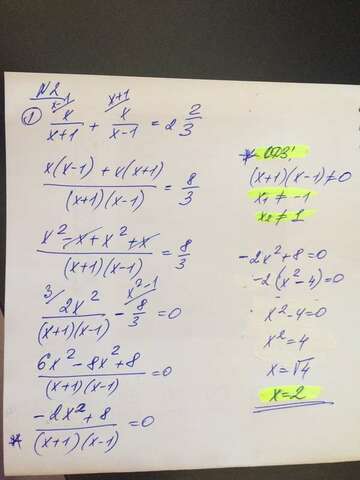 N2
x-1 x+1
1) x/(x+1) + x/(x-1) = 2 2/3
(x(x-1) + x(x+1))/((x+1)(x-1)) = 8/3
(x² - x + x² + x)/((x+1)(x-1)) = 8/3
3 x²-1
2x²/((x+1)(x-1)) - 8/3 = 0
(6x² - 8x² + 8)/((x+1)(x-1)) = 0
* (-2x² + 8)/((x+1)(x-1)) = 0
* ОДЗ:
(x+1)(x-1) ≠ 0
x₁ ≠ -1
x₂ ≠ 1
-2x² + 8 = 0
-2(x² - 4) = 0
x² - 4 = 0
x² = 4
x = √4
x = 2